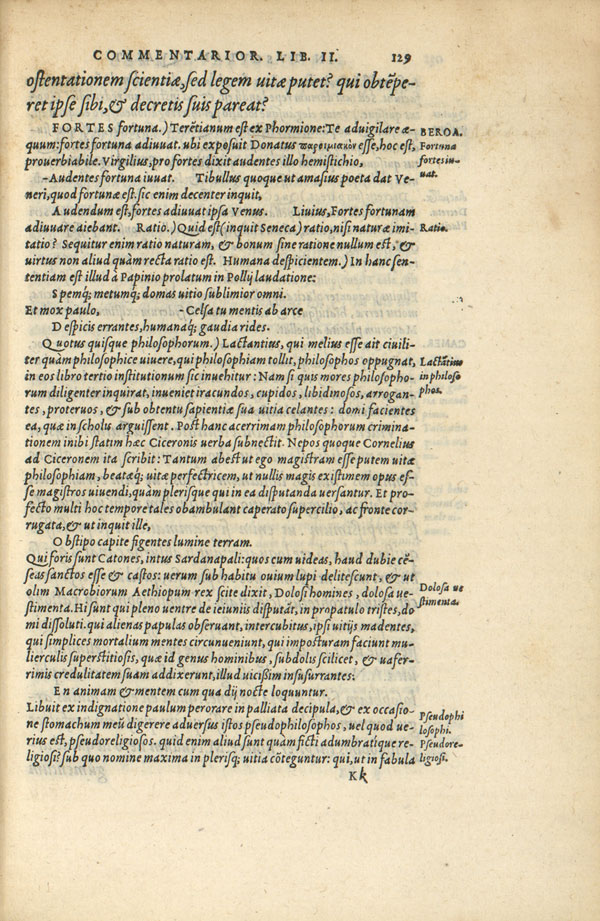 COMMENTARIOR. LIB. II. 129
ostentationem scientiæ, sed legem uitæ putet? qui obtẽpe-
ret ipse sibi, & decretis suis pareat?
FORTES fortuna.) Terẽtianum est ex Phormione: Te aduigilare æ-
quum: fortes fortuna adiuuat. ubi exposuit Donatus παροιμιακὸν esse, hoc est,
prouerbiabile. Virgilius, pro fortes dixit audentes illo hemistichio,
-Audentes fortuna iuuat. Tibullus quoque ut amasius poeta dat Ve-
neri, quod fortunæ est. sic enim decenter inquit,
Audendum est, fortes adiuuat ipsa Venus. Liuius, Fortes fortunam
adiuuare aiebant. Ratio.) Quid est (inquit Seneca) ratio, nisi naturæ imi-
tatio? Sequitur enim ratio naturam, & bonum sine ratione nullum est, &
uirtus non aliud quàm recta ratio est. Humana despicientem.) In hanc sen-
tentiam est illud à Papinio prolatum in Pollij laudatione:
Spemq́; metumq́; domas uitio sublimior omni.
Et mox paulo, - Celsa tu mentis ab arce
Despicis errantes, humanaq́; gaudia rides.
Quotus quisque philosophorum.) Lactantius, qui melius esse ait ciuili-
ter quàm philosophice uiuere, qui philosophiam tollit, philosophos oppugnat,
in eos libro tertio institutionum sic inuehitur: Nam si quis mores philosopho-
rum diligenter inquirat, inueniet iracundos, cupidos, libidinosos, arrogan-
tes, proteruos, & sub obtentu sapientiæ sua uitia celantes: domi facientes
ea, quæ in scholis arguissent. Post hanc acerrimam philosophorum crimina-
tionem inibi statim hæc Ciceronis uerba subnectit. Nepos quoque Cornelius
ad Ciceronem ita scribit: Tantum abest ut ego magistram esse putem uitæ
philosophiam, beatæq́; uitæ perfectricem, ut nullis magis existimem opus es-
se magistros uiuendi, quàm plerisque qui in ea disputanda uersantur. Et pro-
fecto multi hoc tempore tales obambulant caperato supercilio, ac fronte cor-
rugata, & ut inquit ille,
Obstipo capite figentes lumine terram.
Qui foris sunt Catones, intus Sardanapali: quos cum uideas, haud dubie cẽ-
seas sanctos esse & castos: uerum sub habitu ouium lupi delitescunt, & ut
olim Macrobiorum Aethiopum rex scite dixit, Dolosi homines, dolosa ue-
stimenta. Hi sunt qui pleno uentre de ieiuniis disputãt, in propatulo tristes, do
mi dissoluti. qui alienas papulas obseruant, intercubitus, ipsi uitijs madentes,
qui simplices mortalium mentes circunueniunt, qui imposturam faciunt mu-
lierculis superstitiosis, quæ id genus hominibus, subdolis scilicet, & uafer-
rimis credulitatem suam addixerunt, illud uicißim insusurrantes:
En animam & mentem cum qua dij nocte loquuntur.
Libuit ex indignatione paulum perorare in palliata decipula, & ex occasio-
ne stomachum meũ digerere aduersus istos pseudophilosophos, uel quod ue-
rius est, pseudoreligiosos. quid enim aliud sunt quàm ficti adumbratique re-
ligiosi? sub quo nomine maxima in plerisq́; uitia cõteguntur: qui, ut in fabula
Kk
BEROA.
Fortuna
fortes iu-
uat.
Ratio.
Lactãtius
in philoso
phos.
Dolosa ue
stimenta.
Pseudophi
losophi.
Pseudore-
ligiosi.